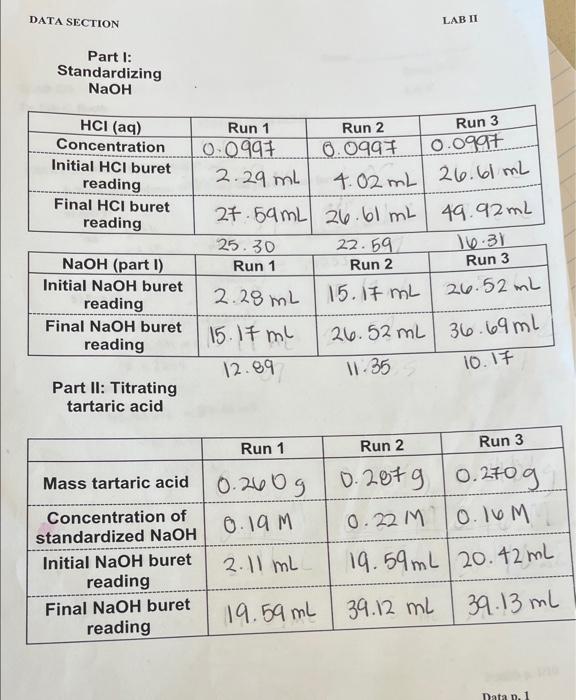 DATA SECTION LAB II
Part I:
Standardizing
NaOH
HCl (aq) Run 1 Run 2 Run 3
Concentration 0.0997 0.0997 0.0997
Initial HCl buret reading 2.29 mL 4.02 mL 26.61 mL
Final HCl buret reading 27.59 mL 26.61 mL 49.92 mL
25.30 22.59 16.31
NaOH (part I) Run 1 Run 2 Run 3
Initial NaOH buret reading 2.28 mL 15.17 mL 26.52 mL
Final NaOH buret reading 15.17 mL 26.52 mL 36.69 mL
12.89 11.35 10.17
Part II: Titrating
tartaric acid
Run 1 Run 2 Run 3
Mass tartaric acid 0.260 g 0.287 g 0.270 g
Concentration of standardized NaOH 0.19 M 0.22 M 0.16 M
Initial NaOH buret reading 2.11 mL 19.59 mL 20.42 mL
Final NaOH buret reading 19.59 mL 39.12 mL 39.13 mL
Data p. 1